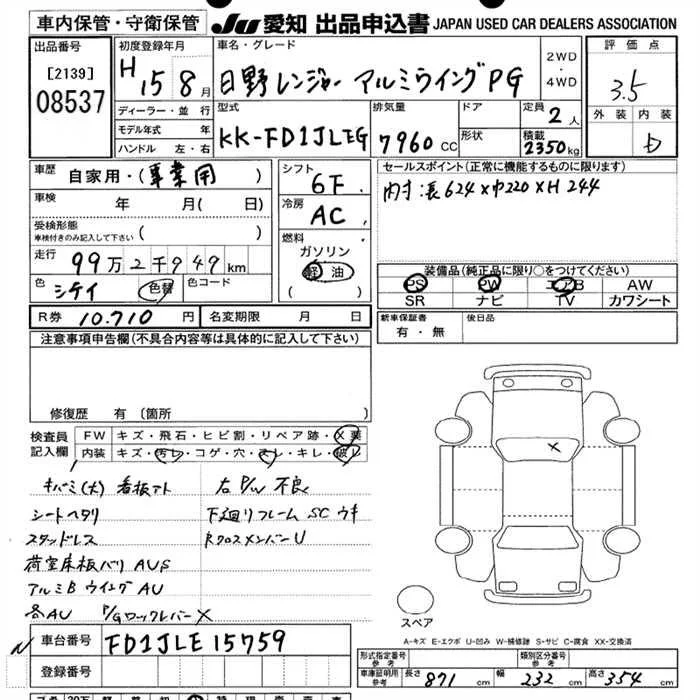 車内保管・守衛保管 JU 愛知 出品申込書 JAPAN USED CAR DEALERS ASSOCIATION
出品番号
[2139]
08537
初度登録年月
H15 8月
車名・グレード
日野レンジャー アルミウイングPG
2WD
・
4WD
評価点
3.5
外装 内装
D
ディーラー・並行
モデル年式 年
ハンドル 左・右
型式
KK-FD1JLEG
排気量
7960 CC
ドア
形状
定員
2 人
積載
2350 kg
車歴
自家用・(事業用)
車検
年 月( 日)
受検形態
車検付きのみ記入して下さい ( )
走行
99万2千949 km
色
シテイ
色替
色コード
シフト
6F
冷房
AC
燃料
ガソリン
軽油
( )
セールスポイント(正常に機能するものに限ります)
内寸:長624×巾220×H244
装備品(純正品に限り○をつけてください)
PS PW エアB AW
SR ナビ TV カワシート
R券 10.710 円 名変期限 月 日
新車保証書
有・無
後日品
注意事項申告欄(不具合内容等は具体的に記入して下さい)
修復歴 有 (箇所 )
検査員
記入欄
FW キズ・飛石・ヒビ割・リペア跡・X要
内装 キズ・汚レ・コゲ・穴・スレ・キレ・破レ
キバミ(大) 看板アト 右P/W不良
シートヘタリ 下廻りフレームSCウキ
スタッドレス RクロスメンバーU
荷室床板バリ AUS
アルミB ウイング AU
各AU P/GロックレバーX
X
スペア
A-キズ E-エクボ U-凹み W-補修跡 S-サビ C-腐食 XX-交換済
N
車台番号 FD1JLE15759
登録番号
形式指定番号
参考
類別区分番号
参考
車庫証明用
参考
長さ 871 cm 幅 232 cm 高さ 354 cm